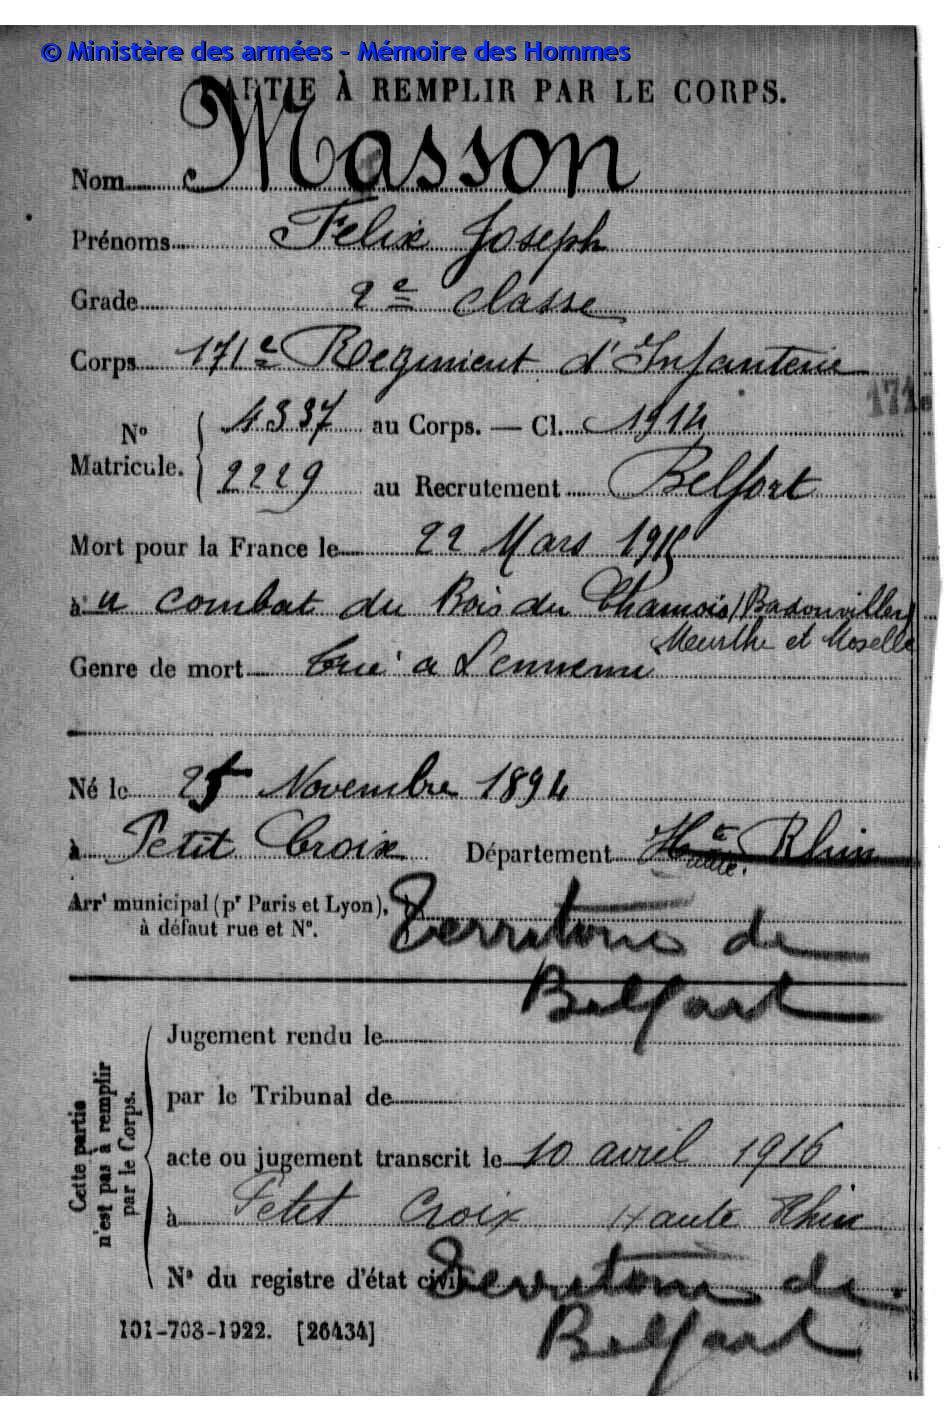 © Ministère des armées - Mémoire des Hommes
PARTIE À REMPLIR PAR LE CORPS.
Nom Masson
Prénoms Felix Joseph
Grade 2e classe
Corps 171e Regiment d'Infanterie
171e
No Matricule. 4337 au Corps. — Cl. 1914
2229 au Recrutement Belfort
Mort pour la France le 22 Mars 1915
à u combat du Bois du Chamois (Badonviller)
Meurthe et Moselle
Genre de mort Tué a L'ennemi
Né le 25 Novembre 1894
à Petit Croix Département Hte Rhin
Haute
Arrt municipal (pr Paris et Lyon), Territoire de
à défaut rue et No.
Belfort
Cette partie n'est pas à remplir par le Corps.
Jugement rendu le
par le Tribunal de
acte ou jugement transcrit le 10 avril 1916
à Petit Croix Haute Rhin
No du registre d'état civil Territoire de
Belfort
101-708-1922. [26434]